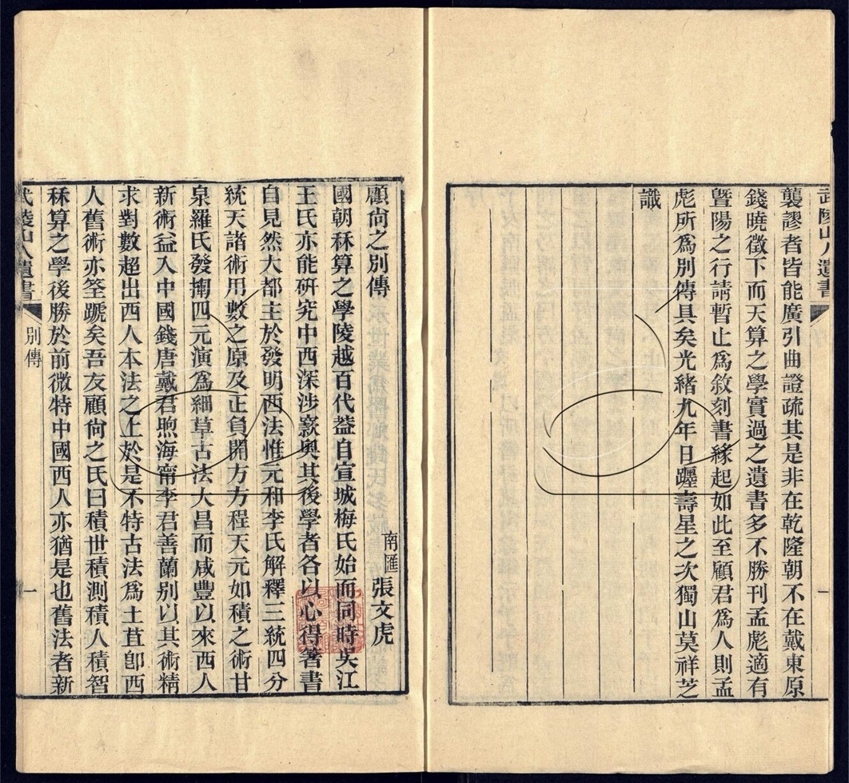 武陵山人遺書
序
一
襲謬者皆能廣引曲證疏其是非在乾隆朝不在戴東原
錢曉徵下而天算之學實過之遺書多不勝刊孟彪適有
暨陽之行請暫止為敘刻書緣起如此至顧君為人則孟
彪所為別傳具矣光緒九年日躔壽星之次獨山莫祥芝
識
顧尚之別傳
南匯張文虎
國朝秝算之學陵越百代葢自宣城梅氏始而同時吳江
王氏亦能研究中西深涉窔奧其後學者各以心得著書
自見然大都主於發明西法惟元和李氏解釋三統四分
統天諸術用數之原及正負開方方程天元如積之術甘
泉羅氏發揃四元演為細草古法大昌而咸豐以來西人
新術益入中國錢唐戴君煦海甯李君善蘭別以其術精
求對數超出西人本法之上於是不特古法為土苴卽西
人舊術亦筌蹏矣吾友顧尚之氏曰積世積測積人積智
秝算之學後勝於前微特中國西人亦猶是也舊法者新
武陵山人遺書
別傳
一